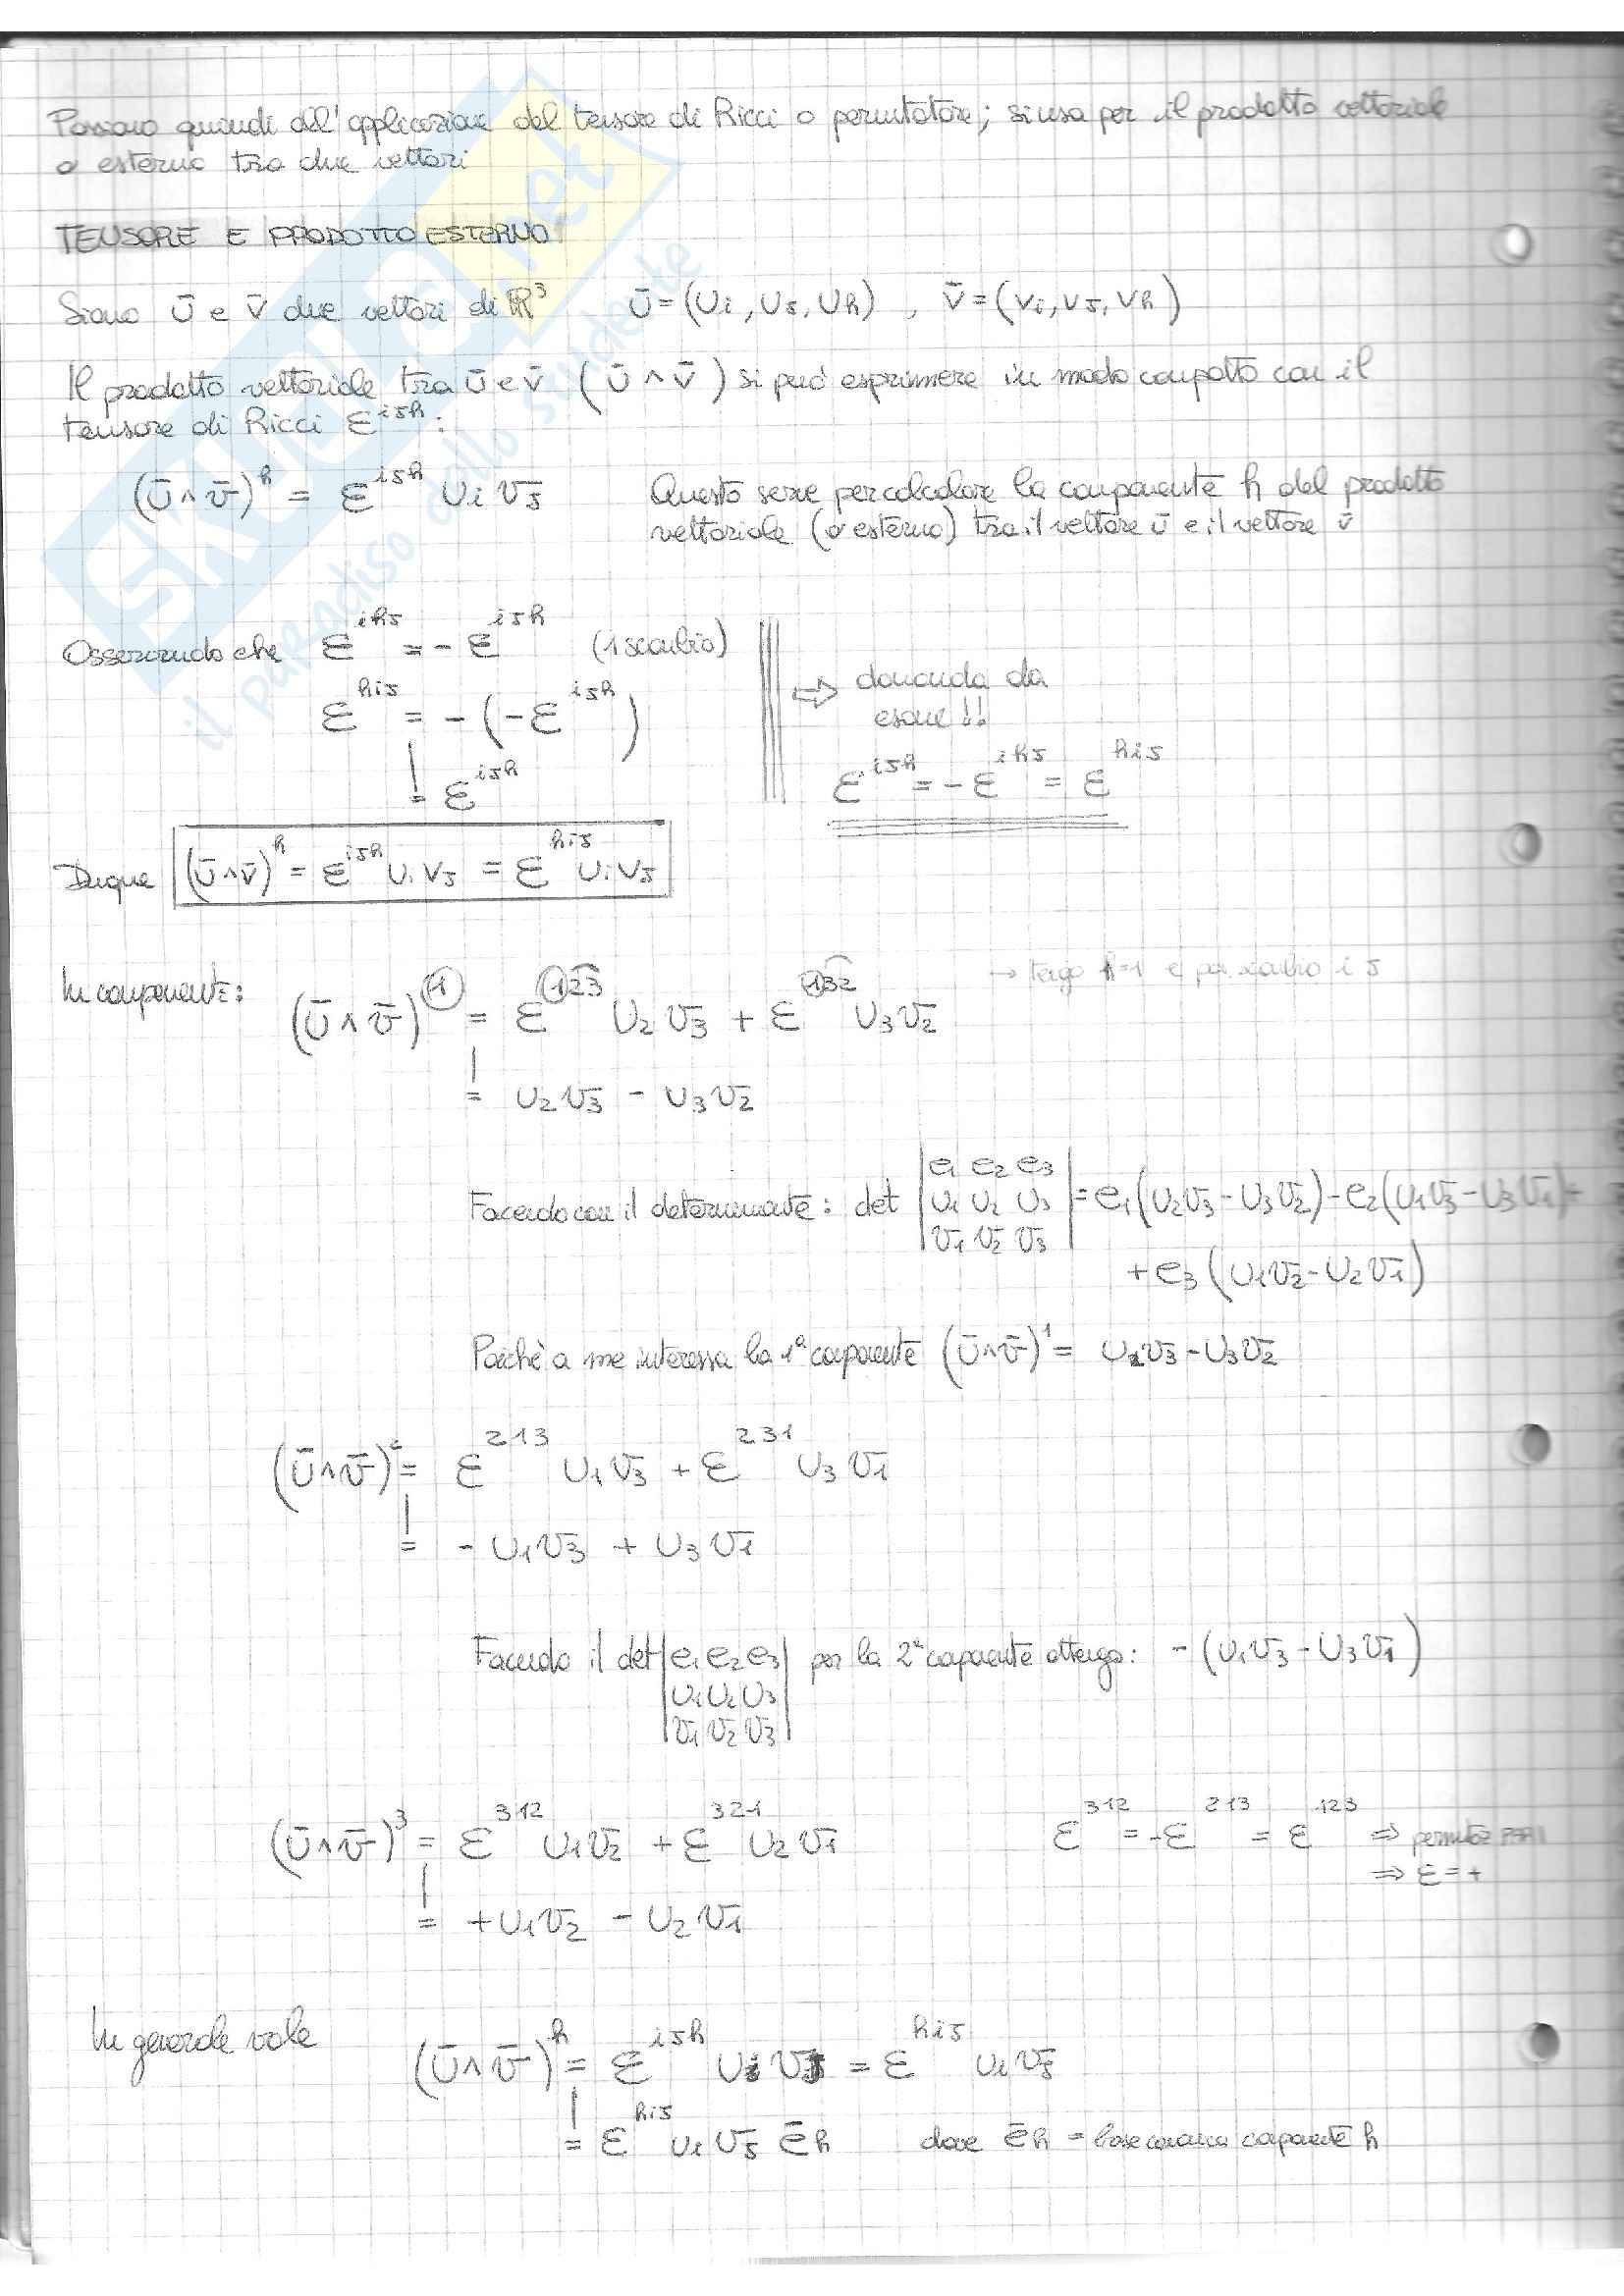 Passiamo quindi all'applicazione del tensore di Ricci o permutatore; si usa per il prodotto vettoriale
o esterno tra due vettori
TENSORE E PRODOTTO ESTERNO
Siano ū e v̄ due vettori di ℝ³ ū = (ui, uj, uh) , v̄ = (vi, vj, vh)
Il prodotto vettoriale tra ū e v̄ (ū ∧ v̄) si può esprimere in modo compatto con il
tensore di Ricci ε^ijh :
(ū ∧ v̄)^h = ε^ijh ui vj Questo serve per calcolare la componente h del prodotto
vettoriale (o esterno) tra il vettore ū e il vettore v̄
Osservando che ε^ihj = - ε^ijh (1 scambio)
ε^hij = - (- ε^ijh)
= ε^ijh
⇨ domanda da
esame!!
ε^ijh = - ε^ihj = ε^hij
Dunque (ū∧v̄)^h = ε^ijh ui vj = ε^hij ui vj
In componenti: (ū ∧ v̄)^1 = ε^123 u2 v3 + ε^132 u3 v2 → tengo h=1 e poi scambio i j
= u2 v3 - u3 v2
Facendo con il determinante: det |e1 e2 e3| = e1(u2v3 - u3v2) - e2(u1v3 - u3v1) +
|u1 u2 u3|
|v1 v2 v3|
+ e3(u1v2 - u2v1)
Poichè a me interessa la 1ª componente (ū∧v̄)^1 = u2v3 - u3v2
(ū∧v̄)^2 = ε^213 u1 v3 + ε^231 u3 v1
= - u1v3 + u3 v1
Facendo il det |e1 e2 e3| per la 2ª componente ottengo: - (u1v3 - u3v1)
|u1 u2 u3|
|v1 v2 v3|
(ū∧v̄)^3 = ε^312 u1v2 + ε^321 u2 v1 ε^312 = - ε^213 = ε^123 ⇒ permutaz PARI
⇒ ε = +
= + u1v2 - u2 v1
In generale vale (ū∧v̄)^h = ε^ijh ui vj = ε^hij ui vj
= ε^hij ui vj ēh dove ēh = base canonica componente h
SKUOLA.net
il paradiso dello studente